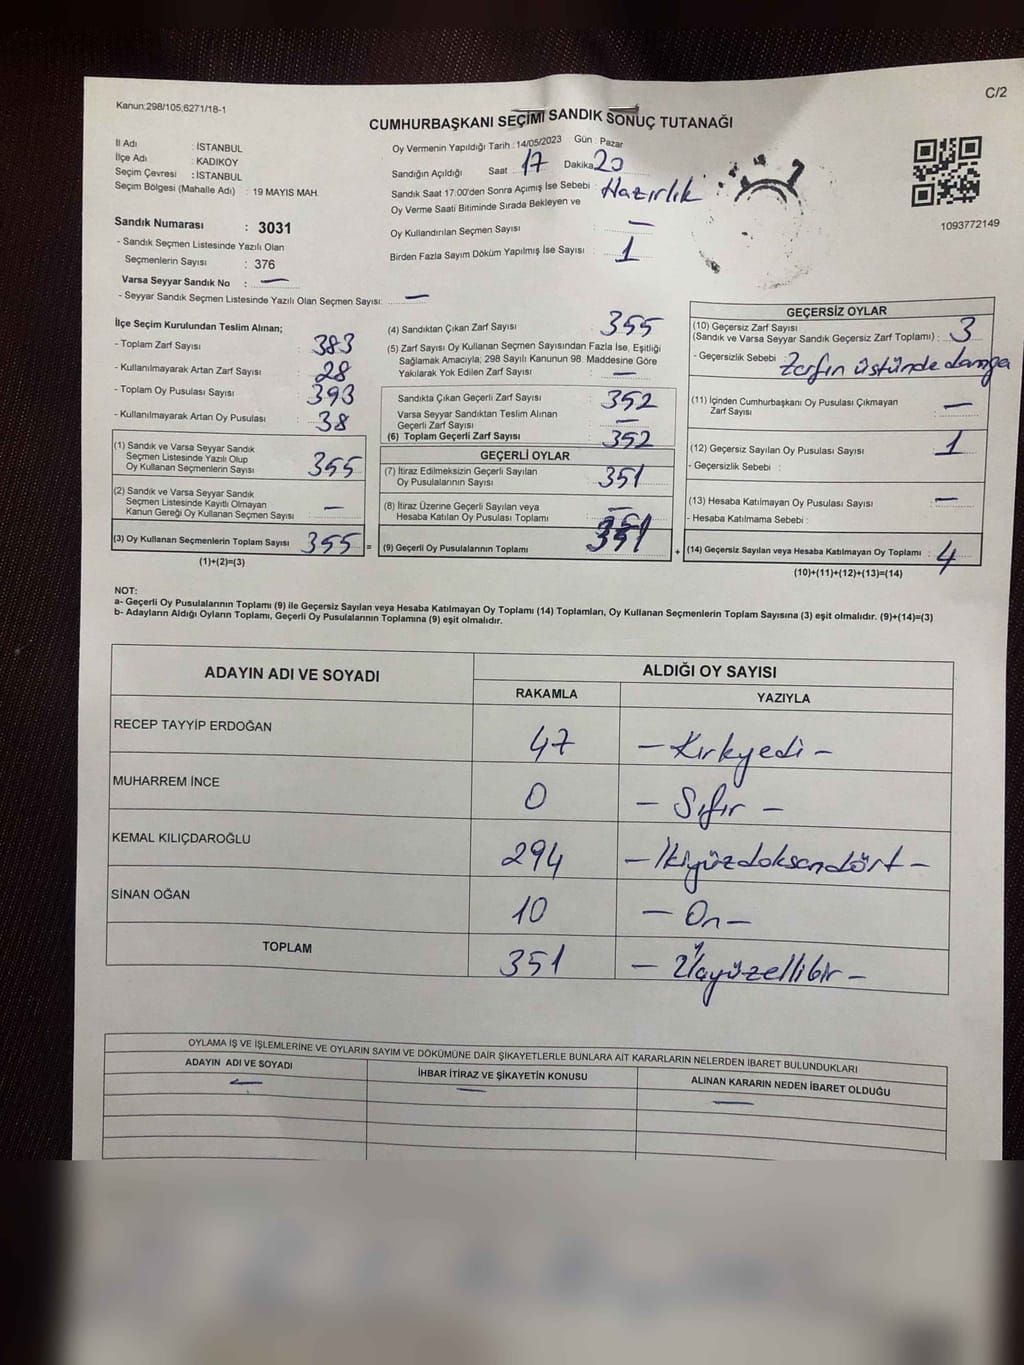 Kanun:298/105,6271/18-1
C/2
CUMHURBAŞKANI SEÇİMİ SANDIK SONUÇ TUTANAĞI
İl Adı : İSTANBUL
İlçe Adı : KADIKÖY
Seçim Çevresi : İSTANBUL
Seçim Bölgesi (Mahalle Adı) : 19 MAYIS MAH.
Sandık Numarası : 3031
- Sandık Seçmen Listesinde Yazılı Olan
Seçmenlerin Sayısı : 376
Varsa Seyyar Sandık No : —
- Seyyar Sandık Seçmen Listesinde Yazılı Olan Seçmen Sayısı: —
Oy Vermenin Yapıldığı Tarih : 14/05/2023 Gün : Pazar
Sandığın Açıldığı Saat : 17 Dakika 20
Sandık Saat 17:00'den Sonra Açımış İse Sebebi : Hazırlık
Oy Verme Saati Bitiminde Sırada Bekleyen ve
Oy Kullandırılan Seçmen Sayısı : —
Birden Fazla Sayım Döküm Yapılmış İse Sayısı : 1
1093772149
İlçe Seçim Kurulundan Teslim Alınan;
- Toplam Zarf Sayısı : 383
- Kullanılmayarak Artan Zarf Sayısı : 28
- Toplam Oy Pusulası Sayısı : 393
- Kullanılmayarak Artan Oy Pusulası : 38
(1) Sandık ve Varsa Seyyar Sandık
Seçmen Listesinde Yazılı Olup
Oy Kullanan Seçmenlerin Sayısı : 355
(2) Sandık ve Varsa Seyyar Sandık
Seçmen Listesinde Kayıtlı Olmayan
Kanun Gereği Oy Kullanan Seçmen Sayısı : —
(3) Oy Kullanan Seçmenlerin Toplam Sayısı : 355 =
(1)+(2)=(3)
(4) Sandıktan Çıkan Zarf Sayısı : 355
(5) Zarf Sayısı Oy Kullanan Seçmen Sayısından Fazla İse, Eşitliği
Sağlamak Amacıyla; 298 Sayılı Kanunun 98. Maddesine Göre
Yakılarak Yok Edilen Zarf Sayısı : —
Sandıkta Çıkan Geçerli Zarf Sayısı : 352
Varsa Seyyar Sandıktan Teslim Alınan
Geçerli Zarf Sayısı : —
(6) Toplam Geçerli Zarf Sayısı : 352
GEÇERLİ OYLAR
(7) İtiraz Edilmeksizin Geçerli Sayılan
Oy Pusulalarının Sayısı : 351
(8) İtiraz Üzerine Geçerli Sayılan veya
Hesaba Katılan Oy Pusulası Toplamı : —
(9) Geçerli Oy Pusulalarının Toplamı : 351 +
GEÇERSİZ OYLAR
(10) Geçersiz Zarf Sayısı
(Sandık ve Varsa Seyyar Sandık Geçersiz Zarf Toplamı) : 3
- Geçersizlik Sebebi : Zarfın üstünde damga
(11) İçinden Cumhurbaşkanı Oy Pusulası Çıkmayan
Zarf Sayısı : —
(12) Geçersiz Sayılan Oy Pusulası Sayısı : 1
- Geçersizlik Sebebi :
(13) Hesaba Katılmayan Oy Pusulası Sayısı : —
- Hesaba Katılmama Sebebi :
(14) Geçersiz Sayılan veya Hesaba Katılmayan Oy Toplamı : 4
(10)+(11)+(12)+(13)=(14)
NOT:
a- Geçerli Oy Pusulalarının Toplamı (9) ile Geçersiz Sayılan veya Hesaba Katılmayan Oy Toplamı (14) Toplamları, Oy Kullanan Seçmenlerin Toplam Sayısına (3) eşit olmalıdır. (9)+(14)=(3)
b- Adayların Aldığı Oyların Toplamı, Geçerli Oy Pusulalarının Toplamına (9) eşit olmalıdır.
ADAYIN ADI VE SOYADI
ALDIĞI OY SAYISI
RAKAMLA YAZIYLA
RECEP TAYYİP ERDOĞAN 47 – Kırkyedi –
MUHARREM İNCE 0 – Sıfır –
KEMAL KILIÇDAROĞLU 294 – İkiyüzdoksandört –
SİNAN OĞAN 10 – On –
TOPLAM 351 – Üçyüzellibir –
OYLAMA İŞ VE İŞLEMLERİNE VE OYLARIN SAYIM VE DÖKÜMÜNE DAİR ŞİKAYETLERLE BUNLARA AİT KARARLARIN NELERDEN İBARET BULUNDUKLARI
ADAYIN ADI VE SOYADI İHBAR İTİRAZ VE ŞİKAYETİN KONUSU ALINAN KARARIN NEDEN İBARET OLDUĞU
— — —